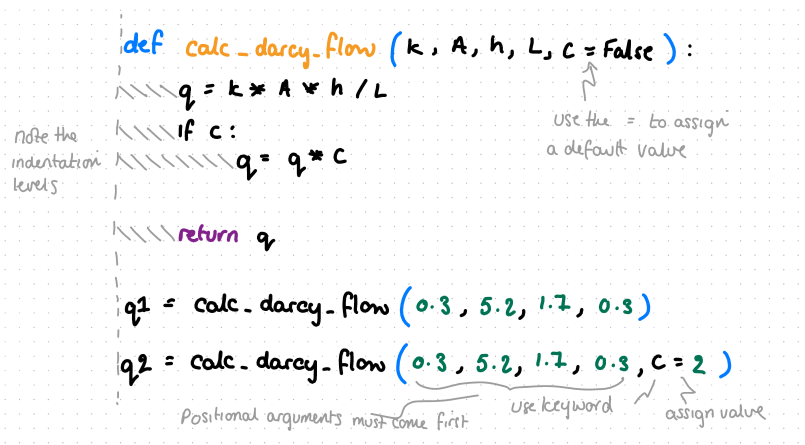 def calc_darcy_flow (k, A, h, L, c = False) :
q = k * A * h / L
use the = to assign
a default value
note the
indentation
levels
if c :
q = q * c
return q
q1 = calc_darcy_flow (0.3, 5.2, 1.7, 0.3)
q2 = calc_darcy_flow (0.3, 5.2, 1.7, 0.3, c = 2)
Positional arguments must come first
use keyword
assign value